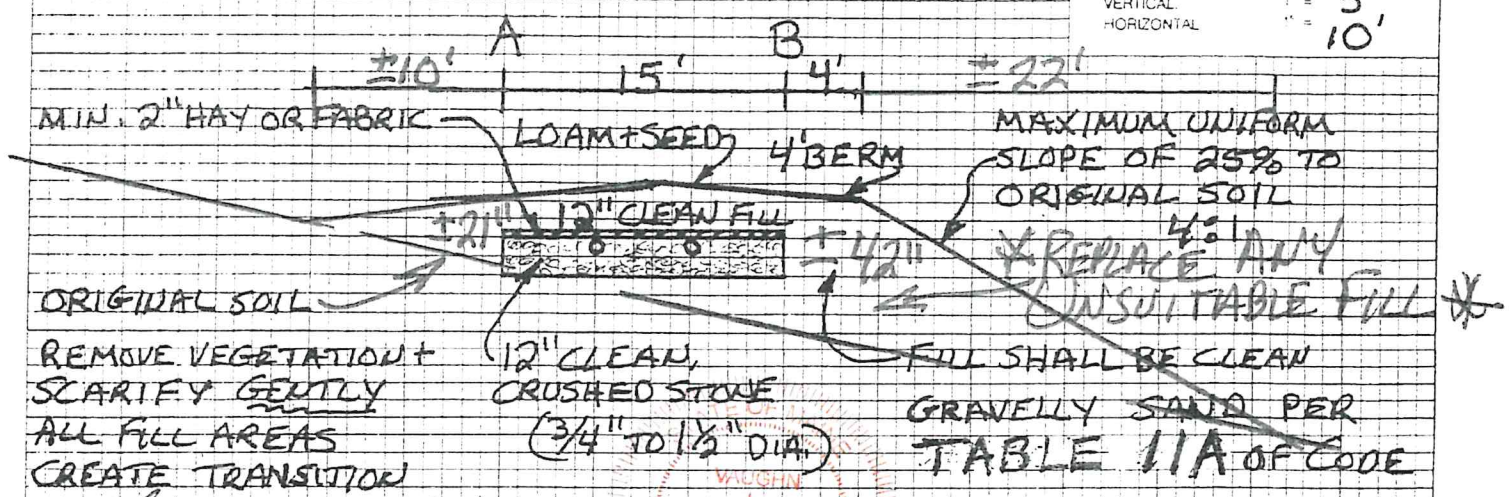 VERTICAL
HORIZONTAL " = 10'
A B
±10' 15' 4' ±22'
MIN. 2" HAY OR FABRIC
LOAM + SEED
4' BERM
MAXIMUM UNIFORM
SLOPE OF 25% TO
ORIGINAL SOIL
4:1
±21"
12" CLEAN FILL
±42"
* REPLACE ANY
UNSUITABLE FILL *
ORIGINAL SOIL
REMOVE VEGETATION +
SCARIFY GENTLY
ALL FILL AREAS
CREATE TRANSITION
12" CLEAN,
CRUSHED STONE
(3/4" TO 1½" DIA.)
FILL SHALL BE CLEAN
GRAVELLY SAND PER
TABLE 11A OF CODE
VAUGHN